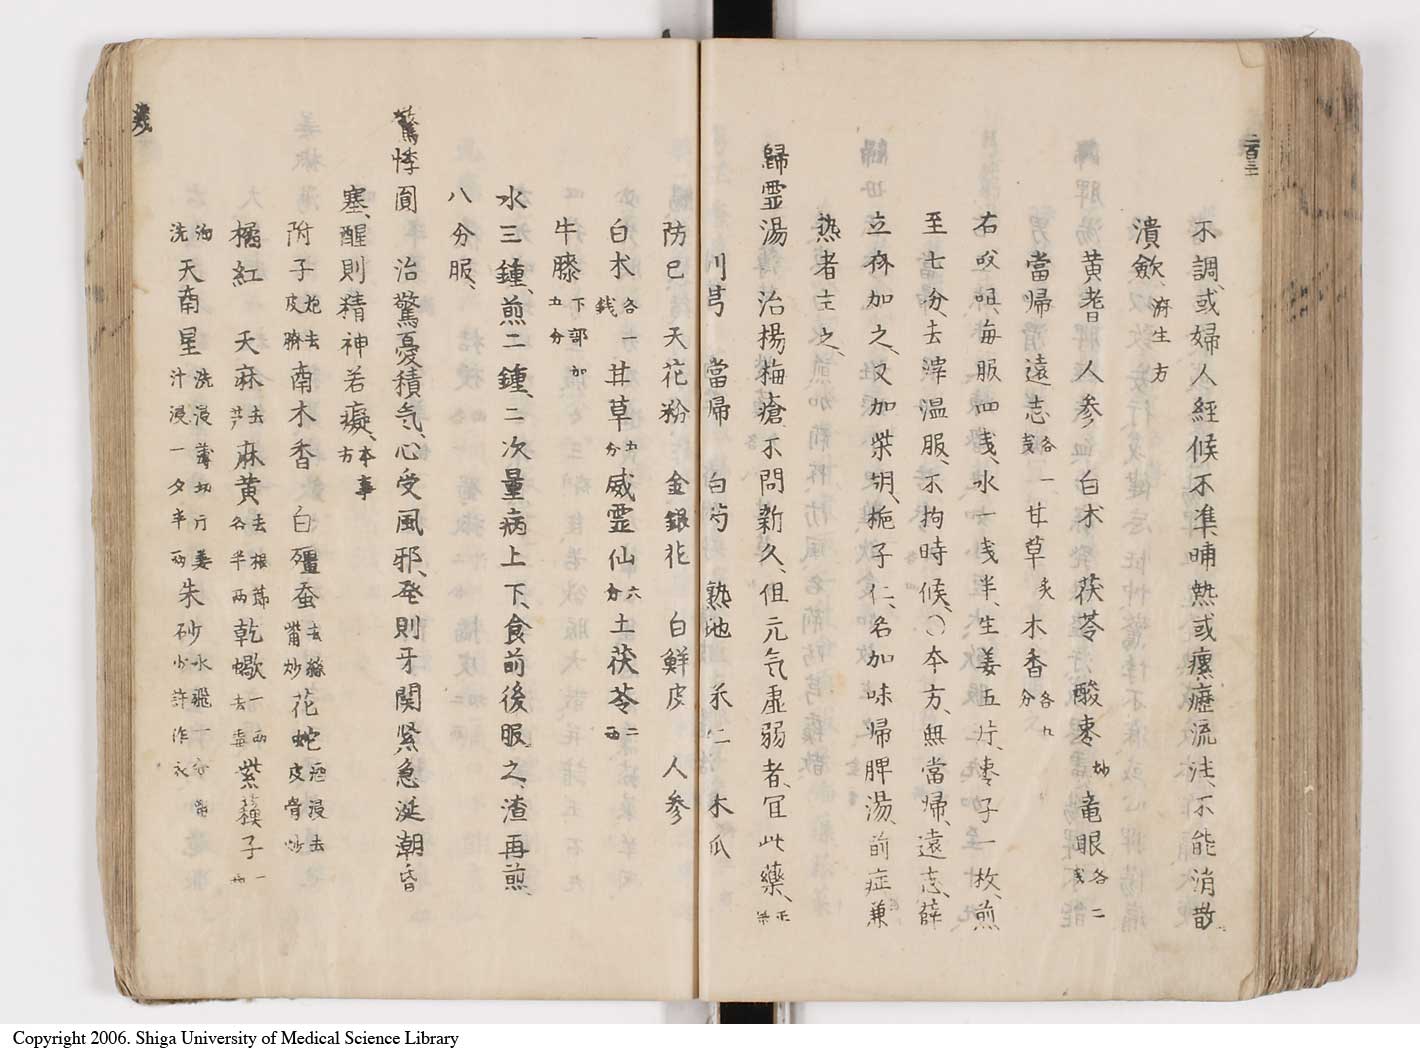 二百三十
不調、或婦人經候不準、晡熱或瘰癧流注、不能消散
潰歛、済生方
黄耆 人参 白朮 茯苓 酸枣炒 竜眼各二戔
當帰 遠志各一戔 甘草炙 木香各九分
右㕮咀、毎服四戔、水一戔半、生姜五片、枣子一枚、煎
至七分、去滓温服、不拘時候、〇夲方、無當帰、遠志、薛
立斎加之、又加柴胡、梔子仁、名加味帰脾湯、前症兼
熱者主之、
歸霊湯 治楊梅瘡不問新久、但元気虚弱者、冝此藥、
川芎 當帰 白芍 熟地 米仁 木瓜
防已 天花粉 金銀花 白鮮皮 人参
白朮各一銭 甘草五分 威霊仙六分 土茯苓二両
牛膝下部加五分
水三鍾、煎二鍾、二次量病上下、食前後服之、渣再煎、
八分服、
驚悸圓 治驚憂積気、心受風邪、発則牙関緊急涎潮昏
塞、醒則精神若癡、本事方
附子炮去皮臍 南木香 白殭蚕去絲觜炒 花蛇酒浸去皮骨炒
橘紅 天麻去芦 麻黄去根節各半両 乾蝎一両去毒 紫蘓子一両
天南星洗浸薄切片姜汁浸一夕半両 朱砂水飛一分留少許作衣
Copyright 2006. Shiga University of Medical Science Library